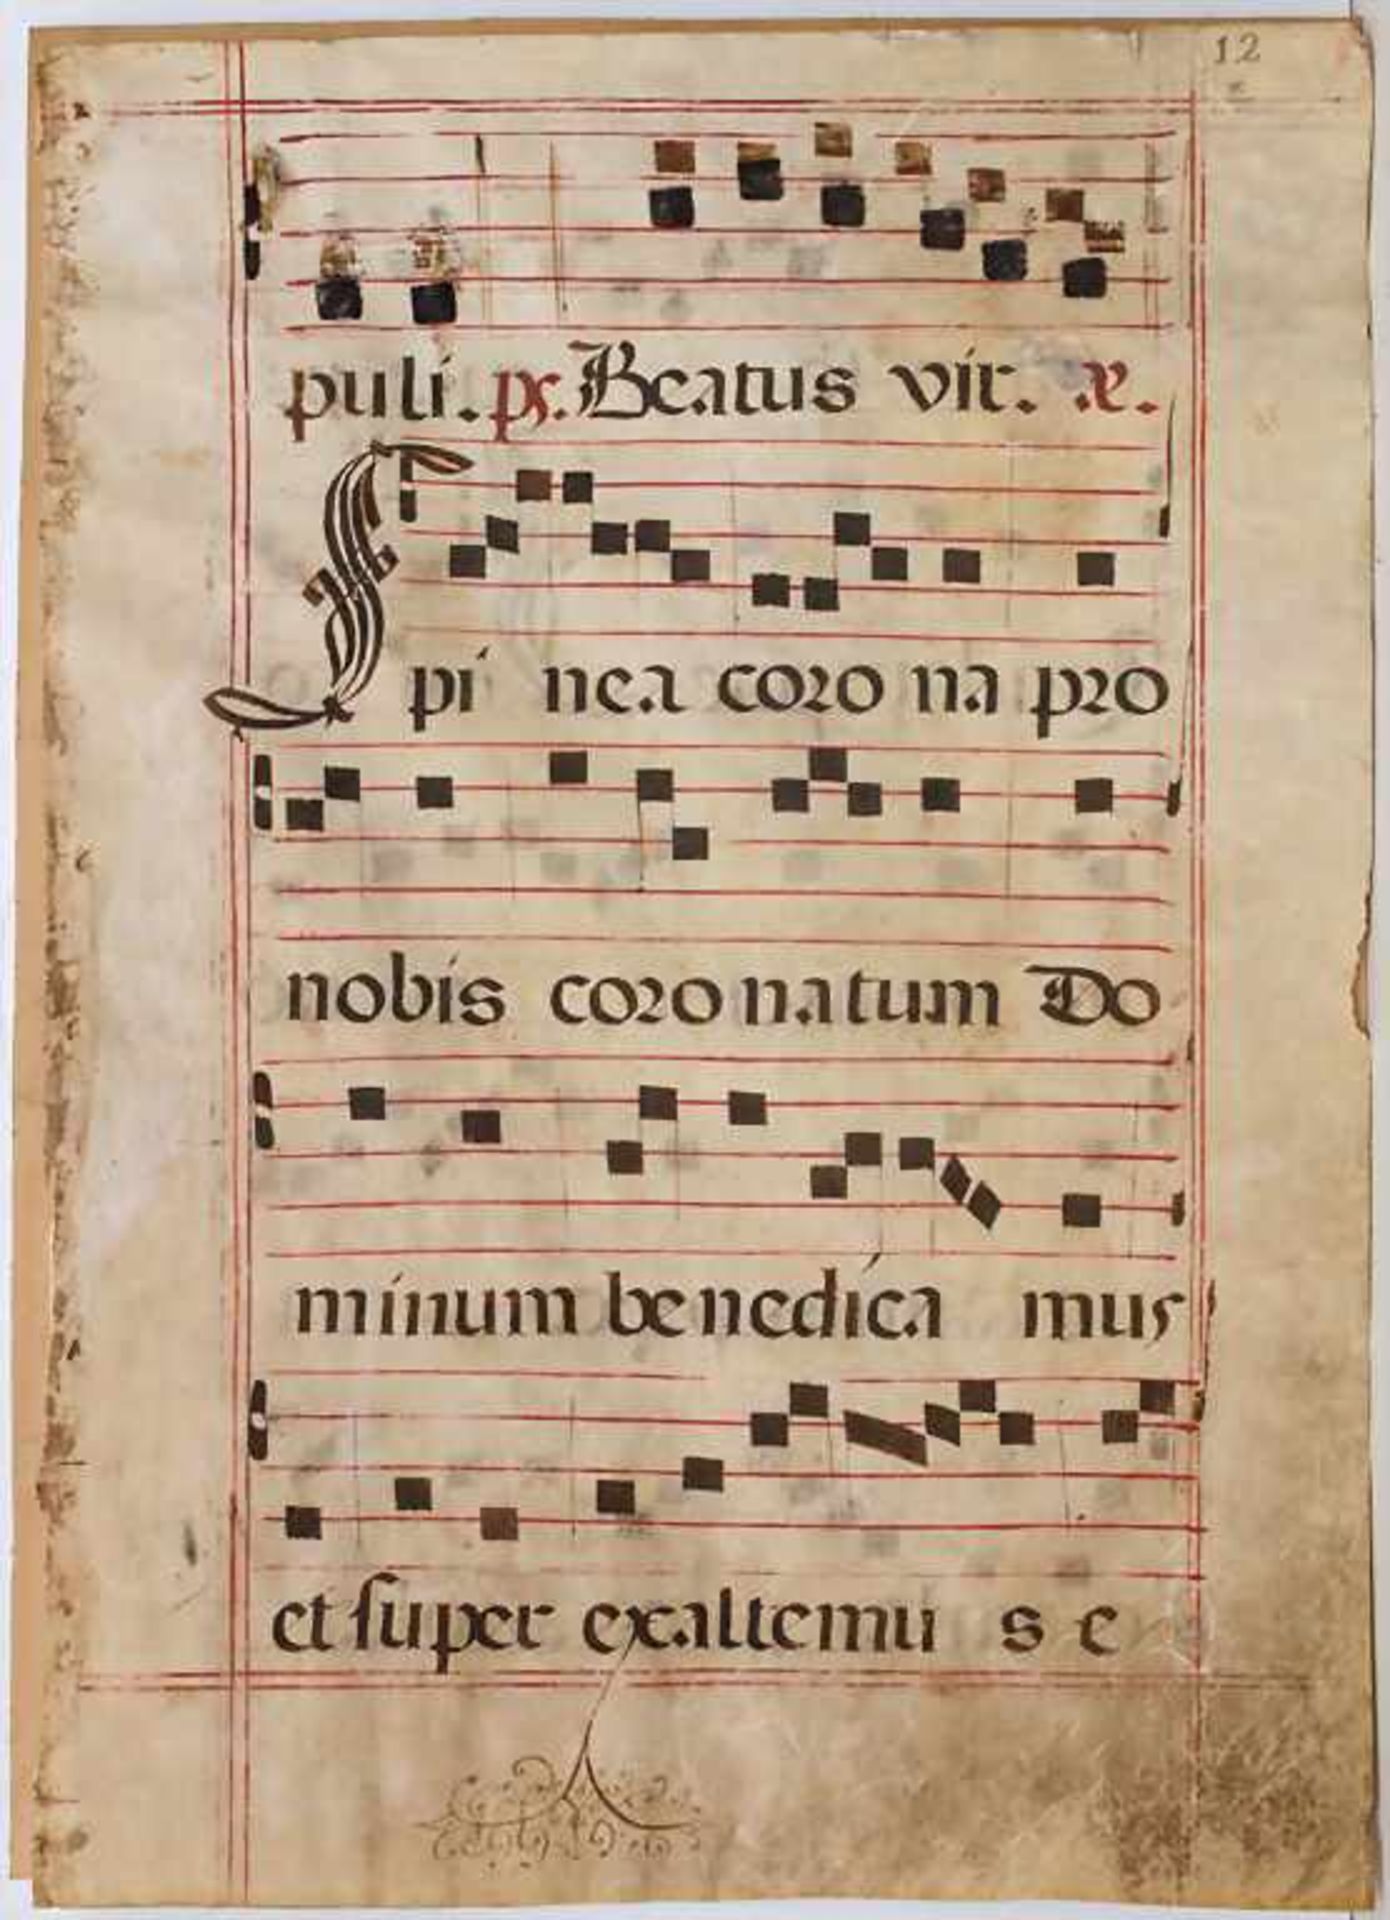 12
puli. ps. Beatus vir. æ.
Spi nea coro na pro
nobis coro natum Do
minum be nedica mus
et super exaltemu s e